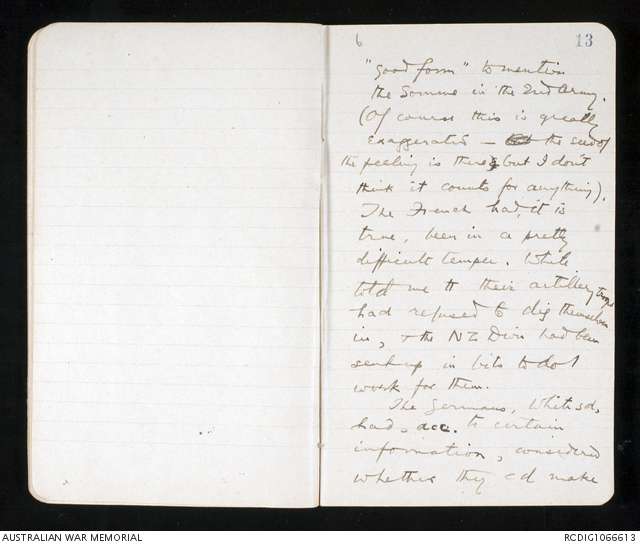 6
13
"good form" to mention
the Somme in the 2nd Army.
(Of course this is greatly
exaggerated — the seed of
the feeling is there, but I don't
think it counts for anything).
The French had, it is
true, been in a pretty
difficult temper. White
told me tt their artillery troops
had refused to dig themselves
in, & the NZ Divn had been
sent up in bits to do
work for them.
The Germans, White sd,
had, acc. to certain
information, considered
whether they cd make
AUSTRALIAN WAR MEMORIAL
RCDIG1066613